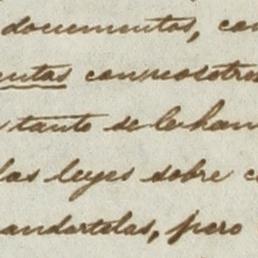 documentos, con
entas connosotros
tanto se le han
las leyes sobre c
andartelas, pero